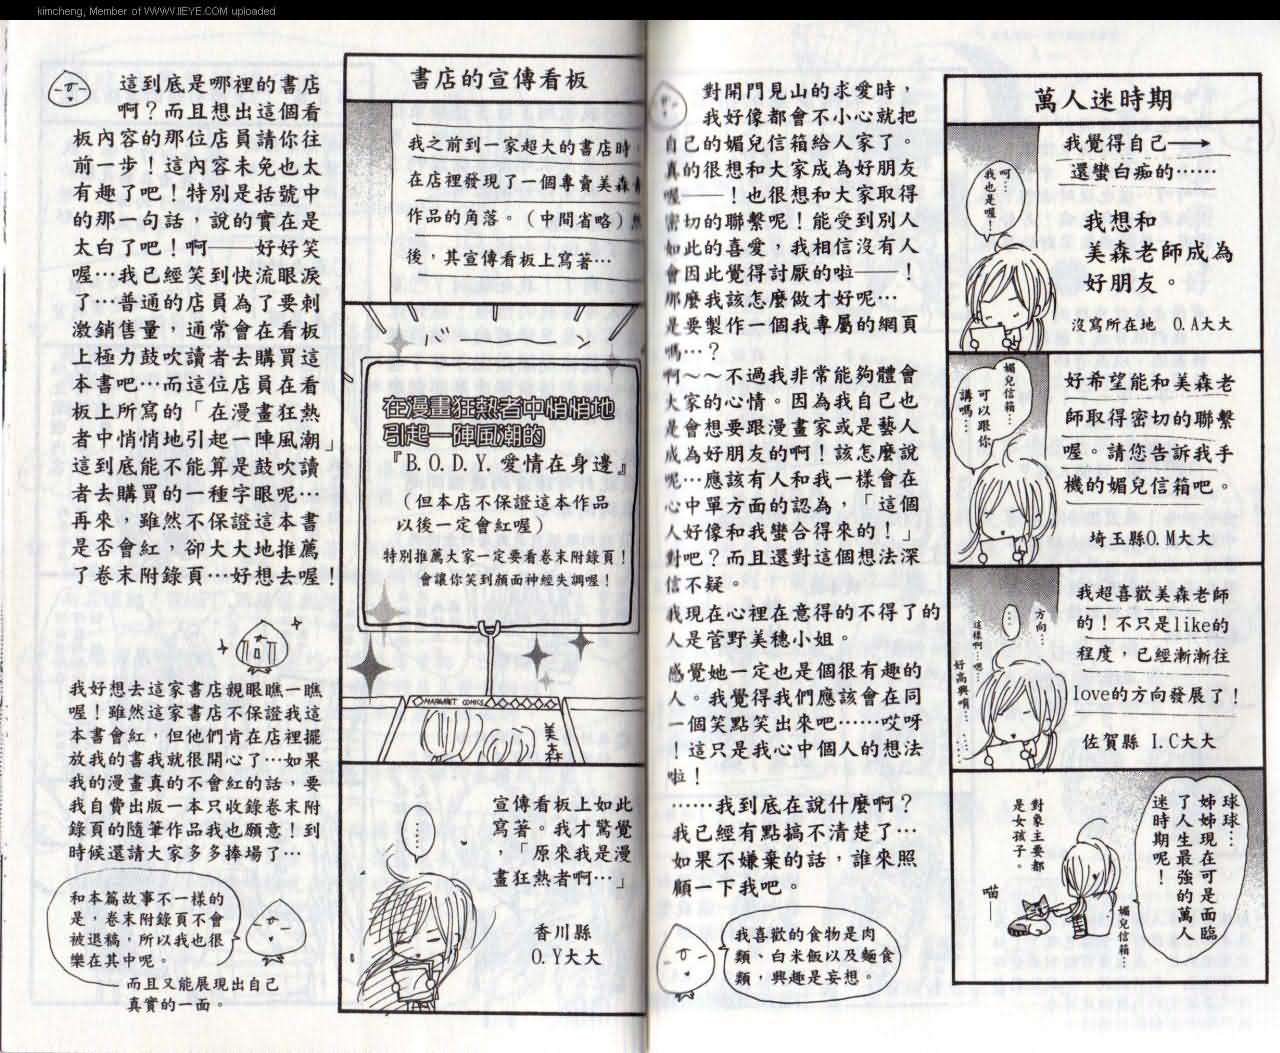 kimcheng, Member of WWW.IIEYE.COM uploaded
萬人迷時期
我覺得自己
還蠻白痴的……
呵…
我也是喔！
我想和
美森老師成為
好朋友。
沒寫所在地 O.A大大
好希望能和美森老
師取得密切的聯繫
喔。請您告訴我手
機的媚兒信箱吧。
媚兒信箱…
可以跟你
講嗎…
埼玉縣O.M大大
我超喜歡美森老師
的！不只是like的
程度，已經漸漸往
love的方向發展了！
方向…
…
這樣啊…嗯…
好高興唷…
佐賀縣 I.C大大
球球…
姊姊現在可是面臨
了人生最強的萬人
迷時期呢！
媚兒信箱…
對象主要都
是女孩子。
喵—
對開門見山的求愛時，
我好像都會不小心就把
自己的媚兒信箱給人家了。
真的很想和大家成為好朋友
喔——！也很想和大家取得
密切的聯繫呢！能受到別人
如此的喜愛，我相信沒有人
會因此覺得討厭的啦——！
那麼我該怎麼做才好呢…
是要製作一個我專屬的網頁
嗎…？
啊～～不過我非常能夠體會
大家的心情。因為我自己也
是會想要跟漫畫家或是藝人
成為好朋友的啊！該怎麼說
呢…應該有人和我一樣會在
心中單方面的認為，「這個
人好像和我蠻合得來的！」
對吧？而且還對這個想法深
信不疑。
我現在心裡在意得的不得了的
人是菅野美穗小姐。
感覺她一定也是個很有趣的
人。我覺得我們應該會在同
一個笑點笑出來吧……哎呀
！這只是我心中個人的想法
啦！
……我到底在說什麼啊？
我已經有點搞不清楚了…
如果不嫌棄的話，誰來照
顧一下我吧。
我喜歡的食物是肉
類、白米飯以及麵食
類，興趣是妄想。
書店的宣傳看板
我之前到一家超大的書店時，
在店裡發現了一個專賣美森
作品的角落。（中間省略）
後，其宣傳看板上寫著…
バーーン
在漫畫狂熱者中悄悄地
引起一陣風潮的
『B.O.D.Y.愛情在身邊』
（但本店不保證這本作品
以後一定會紅喔）
特別推薦大家一定要看卷末附錄頁！
會讓你笑到顏面神經失調喔！
MARGARET COMICS
美森
宣傳看板上如此
寫著。我才驚覺
，「原來我是漫
畫狂熱者啊…」
…
香川縣
O.Y大大
這到底是哪裡的書店
啊？而且想出這個看
板內容的那位店員請你往
前一步！這內容未免也太
有趣了吧！特別是括號中
的那一句話，說的實在是
太白了吧！啊——好好笑
喔…我已經笑到快流眼淚
了…普通的店員為了要刺
激銷售量，通常會在看板
上極力鼓吹讀者去購買這
本書吧…而這位店員在看
板上所寫的「在漫畫狂熱
者中悄悄地引起一陣風潮」
這到底能不能算是鼓吹讀
者去購買的一種字眼呢…
再來，雖然不保證這本書
是否會紅，卻大大地推薦
了卷末附錄頁…好想去喔！
我好想去這家書店親眼瞧一瞧
喔！雖然這家書店不保證我這
本書會紅，但他們肯在店裡擺
放我的書我就很開心了…如果
我的漫畫真的不會紅的話，要
我自費出版一本只收錄卷末附
錄頁的隨筆作品我也願意！到
時候還請大家多多捧場了…
和本篇故事不一樣的
是，卷末附錄頁不會
被退稿，所以我也很
樂在其中呢。
而且又能展現出自己
真實的一面。